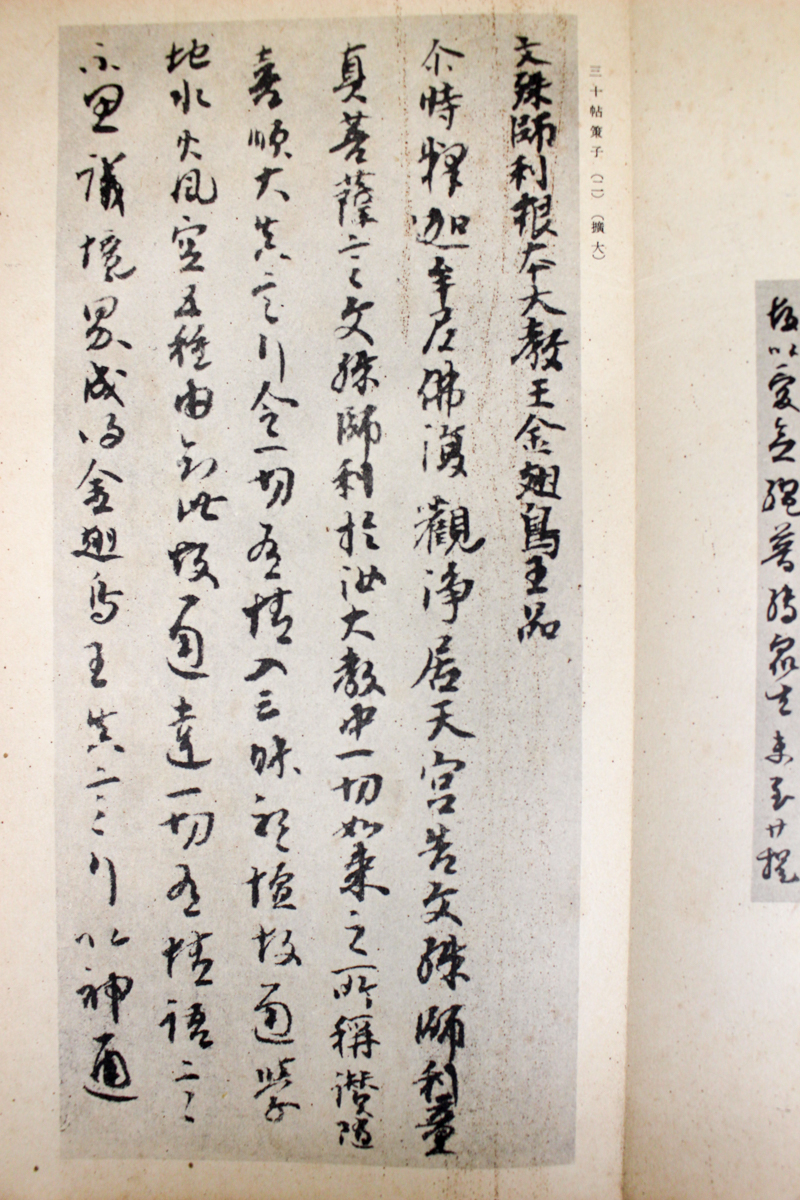 三十帖策子（二）（擴大）
文殊師利根本大教王金翅鳥王品
尒時釋迦牟尼佛復觀淨居天宮告文殊師利童
真菩薩言文殊師利於汝大教中一切如来之所稱讃隨
喜順大真言行令一切有情入三昧壇故通學
地水火風空五種由此故通達一切有情語言
不思議境界成得金翅鳥王真言行以神通